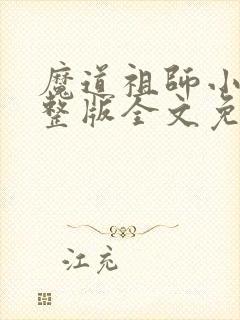 魔道祖师小
整版全文免
江充